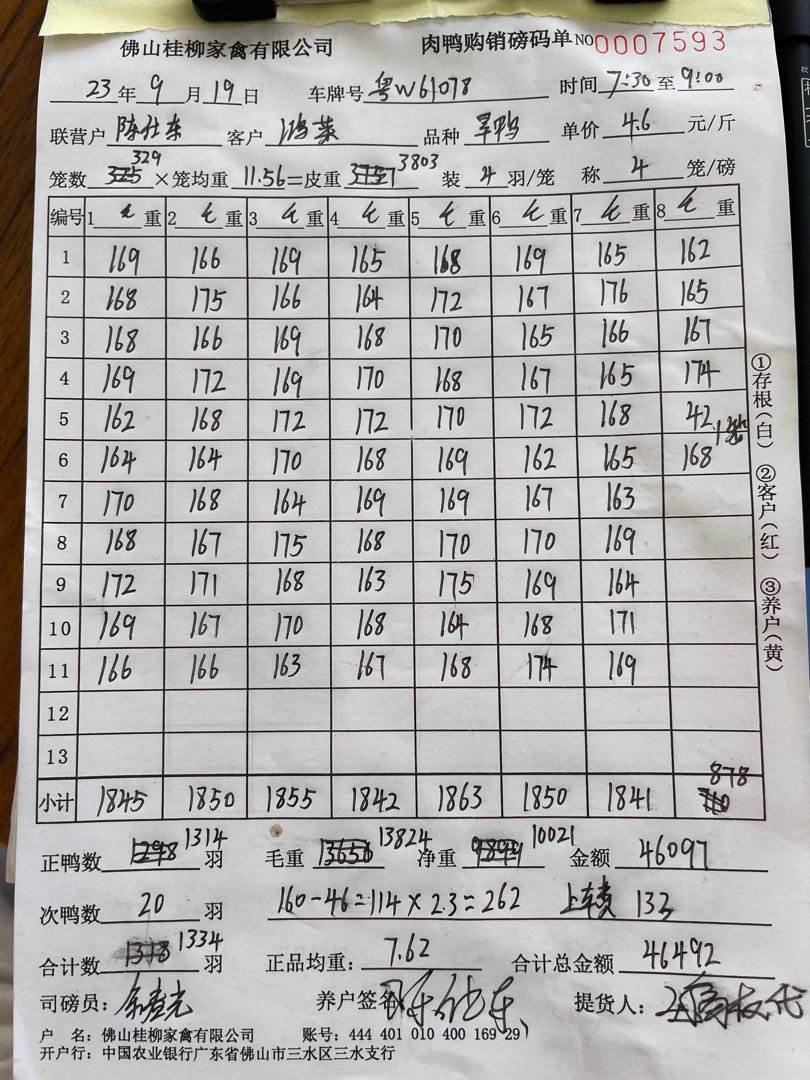 佛山桂柳家禽有限公司 肉鸭购销磅码单 NO 0007593
23年9月19日 车牌号 粤W61078 时间 7:30至9:00
联营户 陈仕东 客户 鸿菜 品种 旱鸭 单价 4.6 元/斤
329 3803
笼数 325 ×笼均重 11.56=皮重 装 4 羽/笼 称 4 笼/磅
编号 1 毛重 2 毛重 3 毛重 4 毛重 5 毛重 6 毛重 7 毛重 8 毛重
1 169 166 169 165 168 169 165 162
2 168 175 166 164 172 167 176 165
3 168 166 169 168 170 165 166 167
4 169 172 169 170 168 167 165 174
5 162 168 172 172 170 172 168 42
6 164 164 170 168 169 162 165 168
7 170 168 164 169 169 167 163
8 168 167 175 168 170 170 169
9 172 171 168 163 175 169 164
10 169 167 170 168 164 168 171
11 166 166 163 167 168 174 169
12
13
878
小计 1845 1850 1855 1842 1863 1850 1841
①存根(白) ②客户(红) ③养户(黄)
正鸭数 1298 1314 羽 毛重 13656 13824 净重 9899 10021 金额 46097
次鸭数 20 羽 160-46=114×2.3=262 上车费 133
合计数 1318 1334 羽 正品均重: 7.62 合计总金额 46492
司磅员: 养户签名 陈仕东 提货人:
户 名: 佛山桂柳家禽有限公司 账号: 444 401 010 400 169 29
开户行: 中国农业银行广东省佛山市三水区三水支行